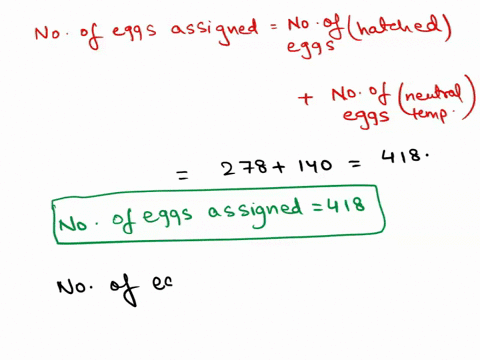 No. of eggs assigned = No. of (hatched)
eggs
+ No. of (neutral)
eggs temp.
= 278 + 140 = 418.
No. of eggs assigned = 418
No. of